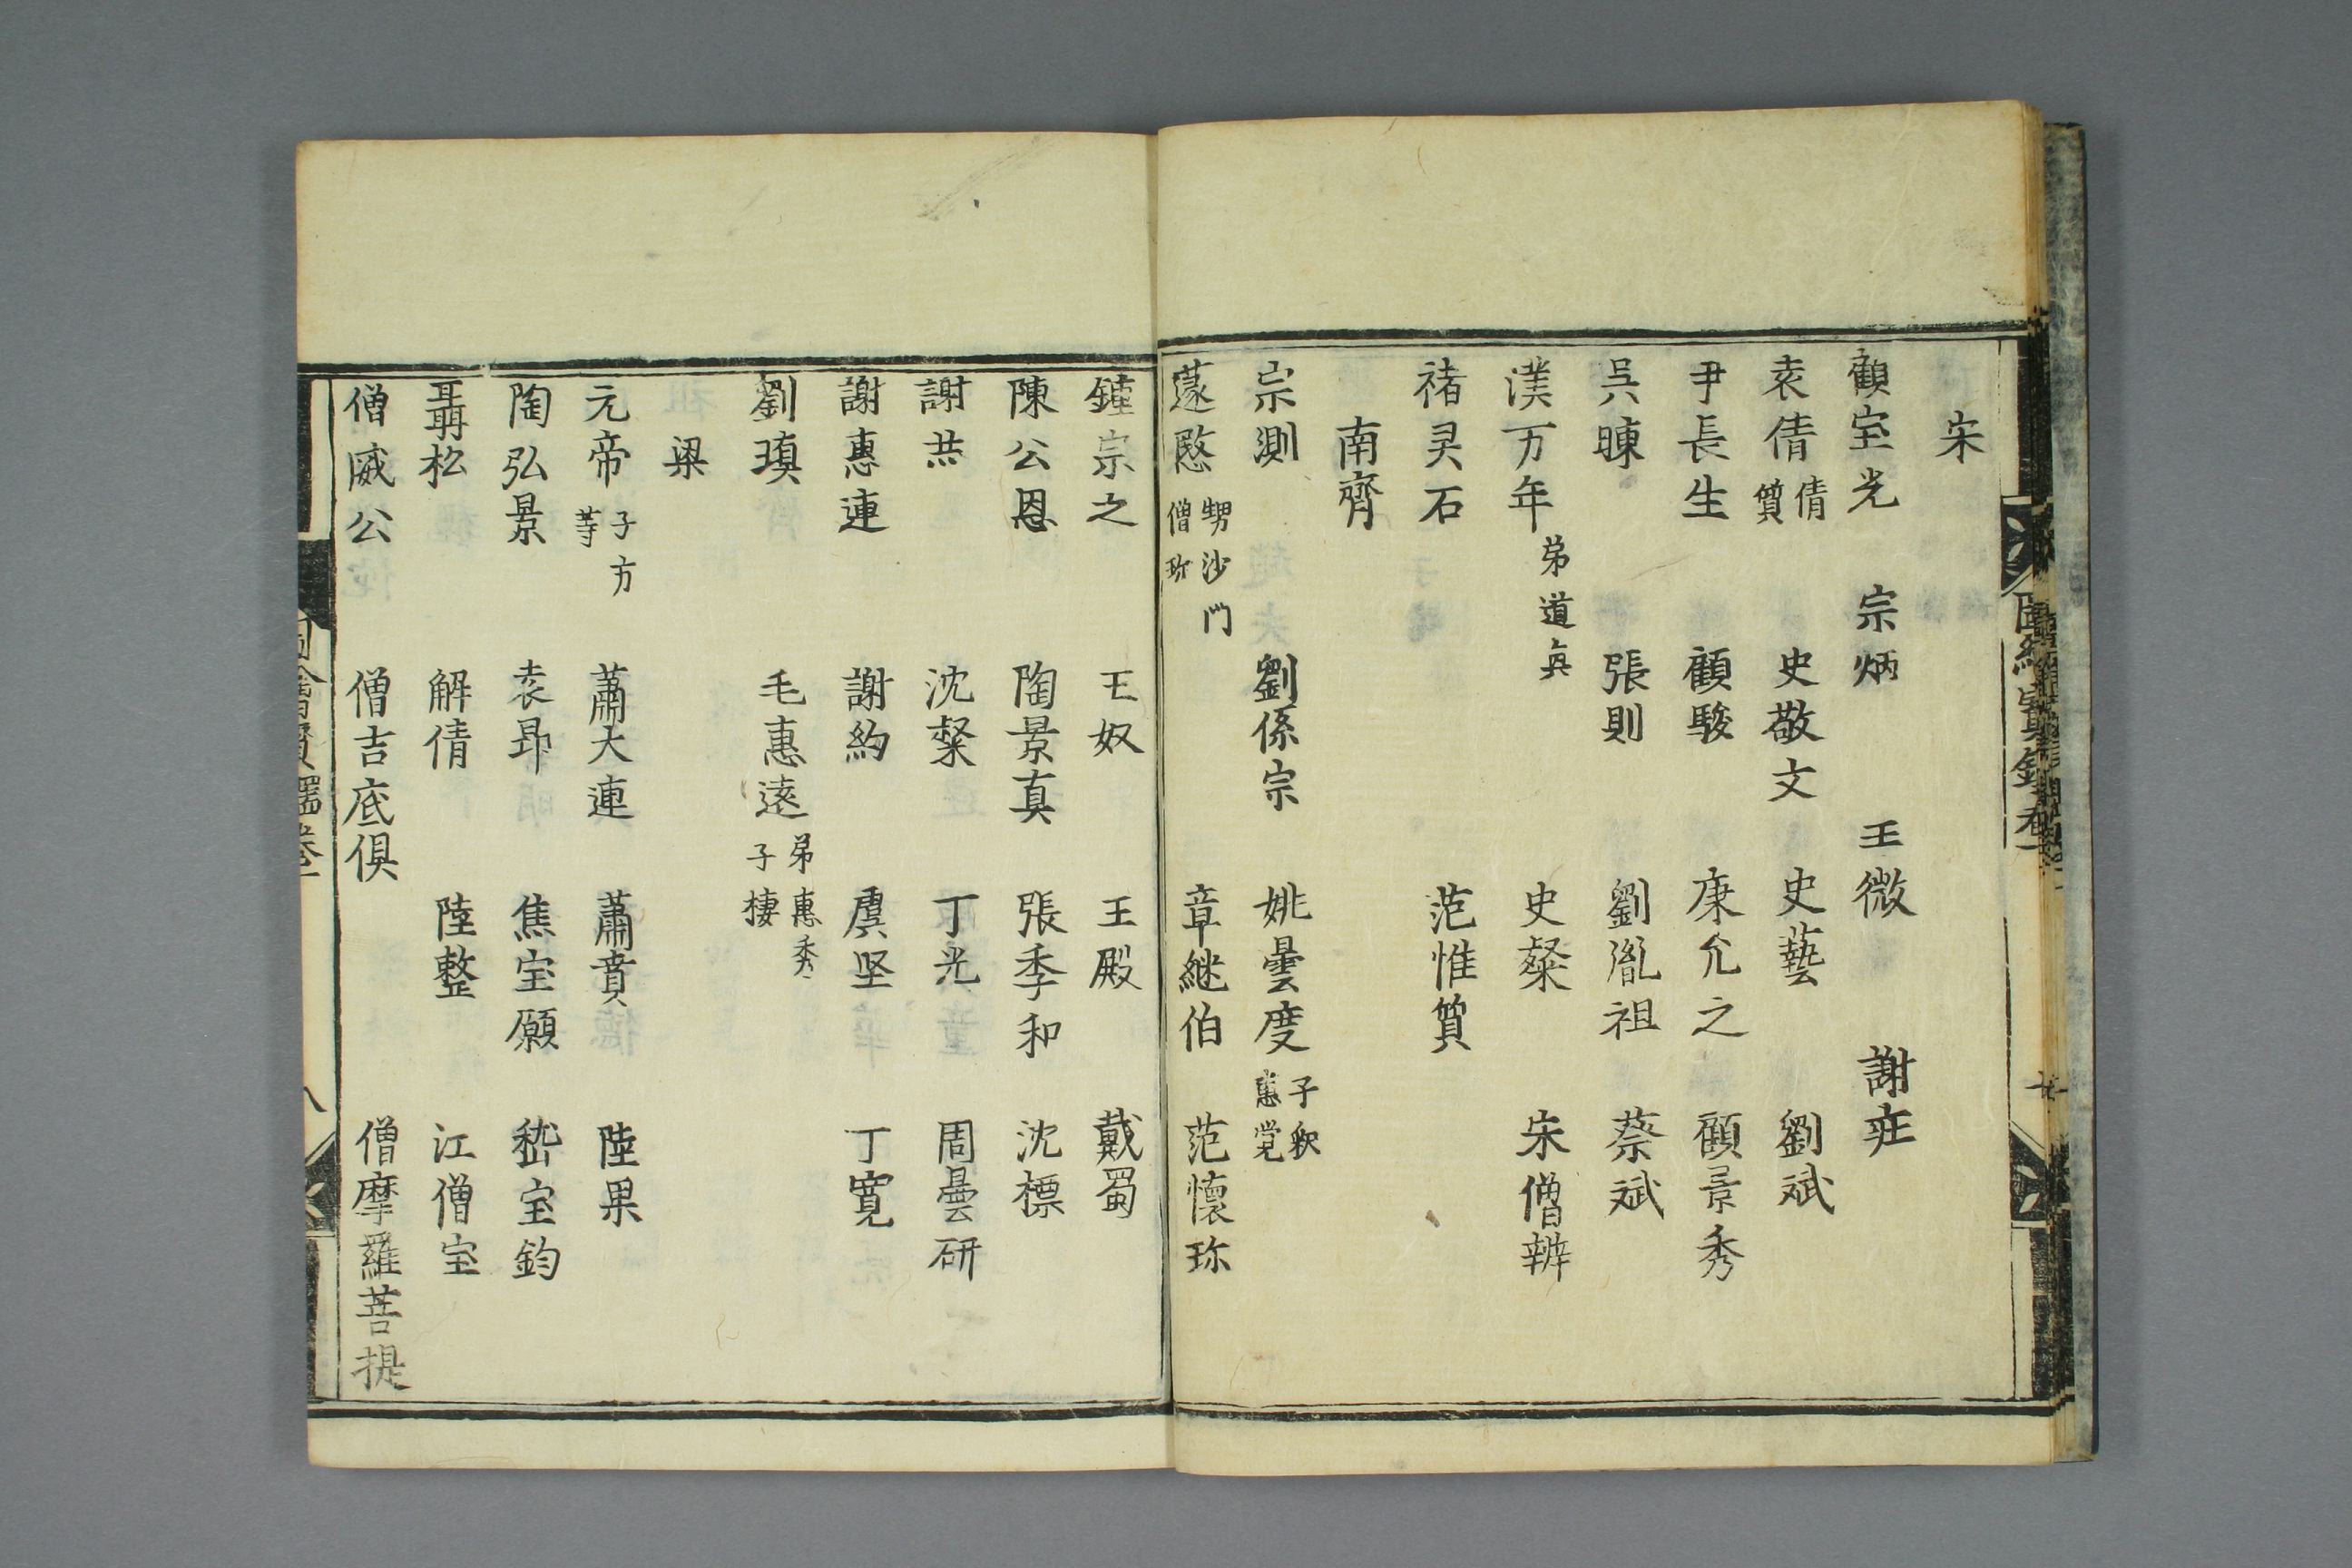 宋
顧宝光 宗炳 王微 謝庄
袁倩 倩質 史敬文 史藝 劉斌
尹長生 顧駿 康允之 顧景秀
吳暕 張則 劉胤祖 蔡斌
濮万年 弟道真 史粲 宋僧辨
褚灵石 范惟質
南齊
宗測 劉係宗 姚曇度 子釈惠覚
蘧愍 甥沙門僧珎 章継伯 范懷珎
鍾宗之 王奴 王殿 戴蜀
陳公恩 陶景真 張季和 沈標
謝赫 沈粲 丁光 周曇研
謝惠連 謝約 虞坚 丁寬
劉瑱 毛惠遠 弟惠秀子棲
梁
元帝 子方等 蕭大連 蕭賁 陸果
陶弘景 袁昂 焦宝願 嵇宝鈞
聶松 解倩 陸整 江僧宝
僧威公 僧吉底俱 僧摩羅菩提